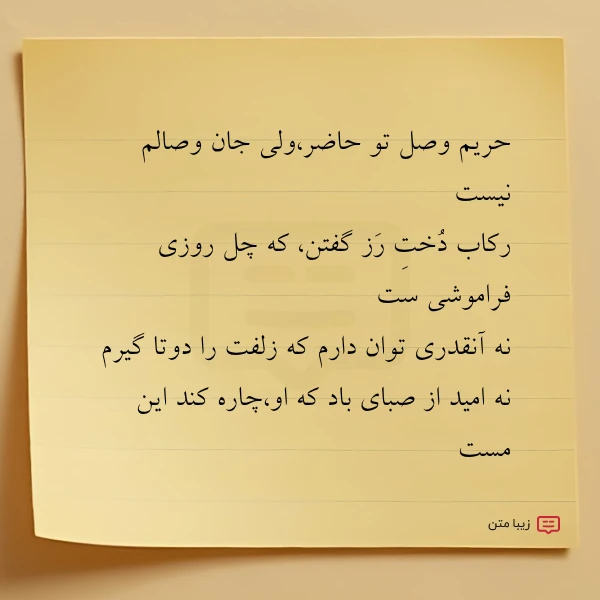 حریم وصل تو حاضر،ولی جان وصالم
نیست
رکاب دُختِ رَز گفتن، که چل روزی
فراموشی ست
نه آنقدری توان دارم که زلفت را دوتا گیرم
نه امید از صبای باد که او،چاره کند این
مست
زیبا متن